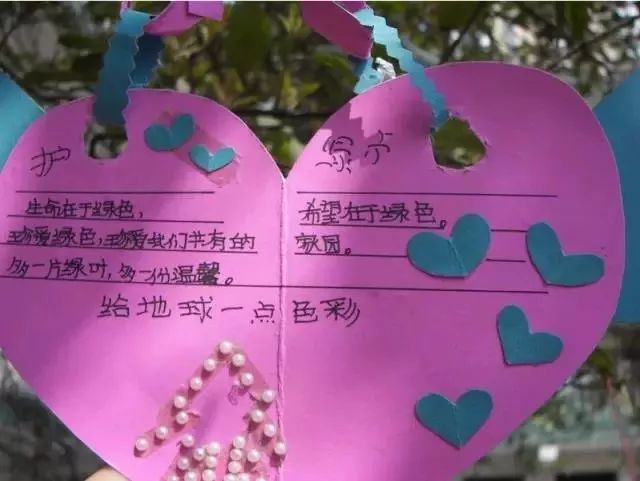 护
生命在于绿色， 希望在于绿色。
珍爱绿色，珍爱我们共有的 家园。
多一片绿叶，多一份温馨。
给地球一点色彩